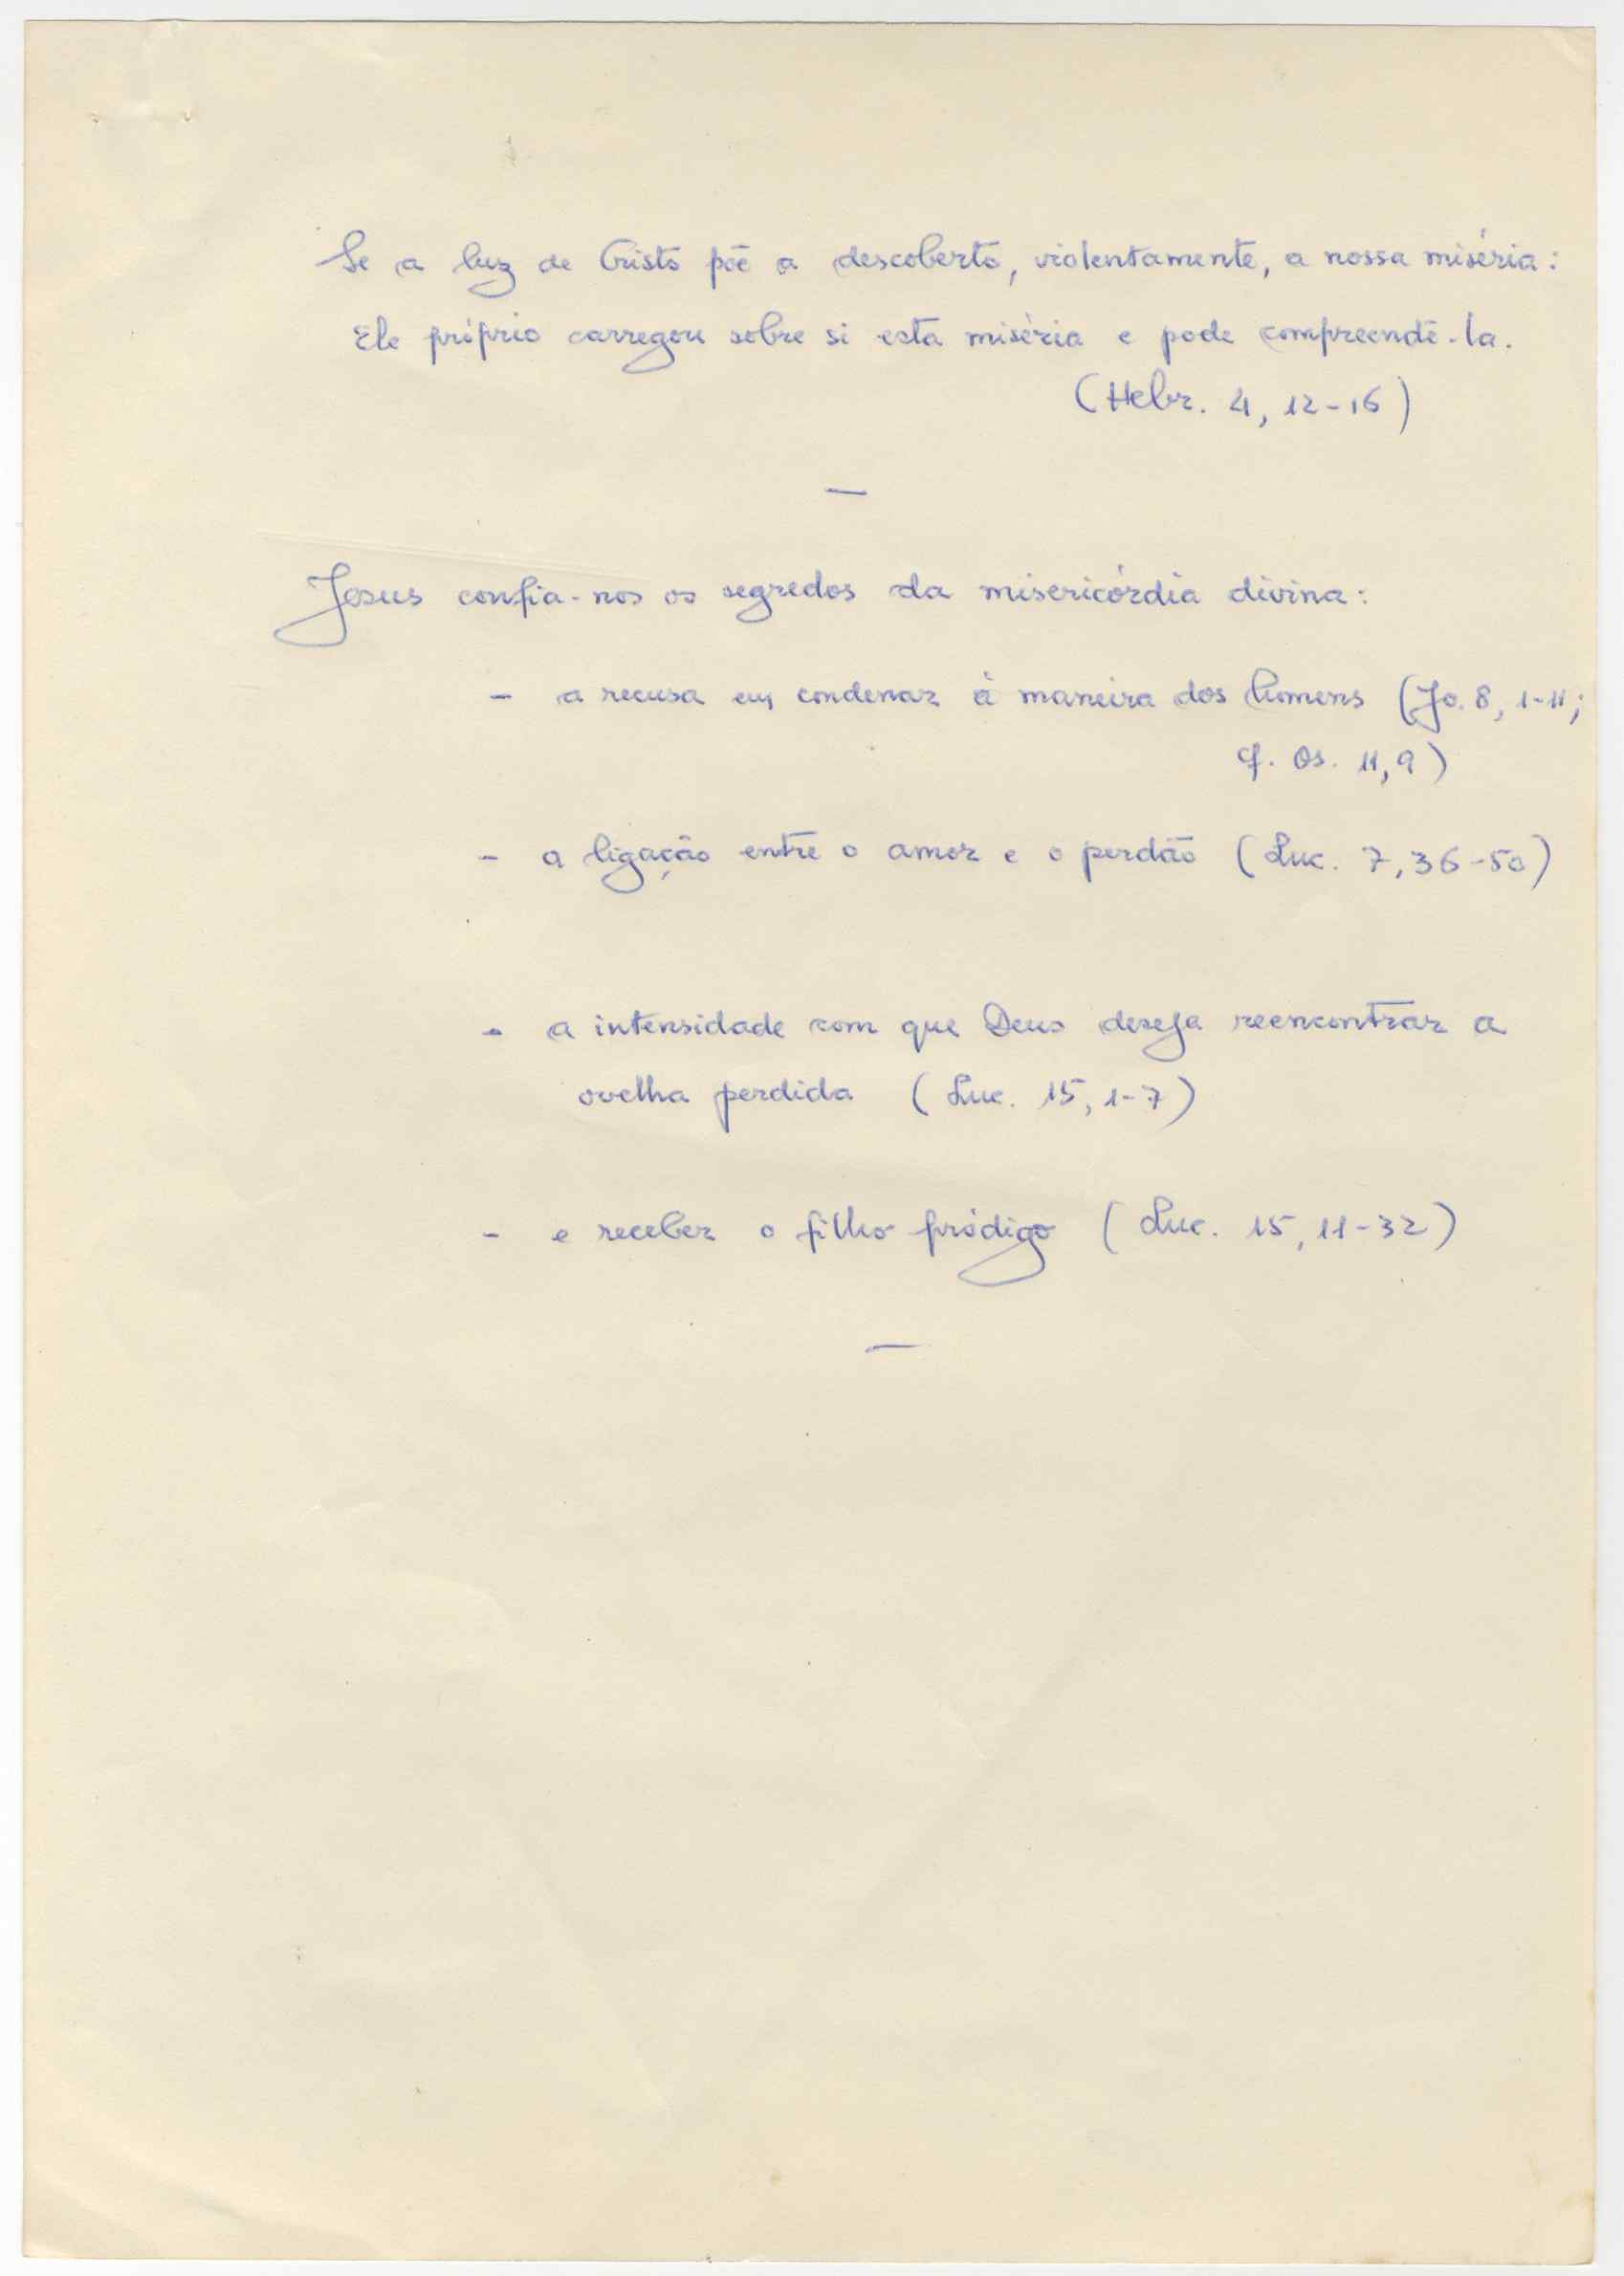 Se a luz de Cristo põe a descoberto, violentamente, a nossa miséria:
Ele próprio carregou sobre si esta miséria e pode compreendê-la.
(Hebr. 4, 12-16)
—
Jesus confia-nos os segredos da misericórdia divina:
- a recusa em condenar à maneira dos homens (Jo. 8, 1-11;
cf. Os. 11, 9)
- a ligação entre o amor e o perdão (Luc. 7, 36-50)
- a intensidade com que Deus deseja reencontrar a
ovelha perdida (Luc. 15, 1-7)
- e receber o filho pródigo (Luc. 15, 11-32)
—